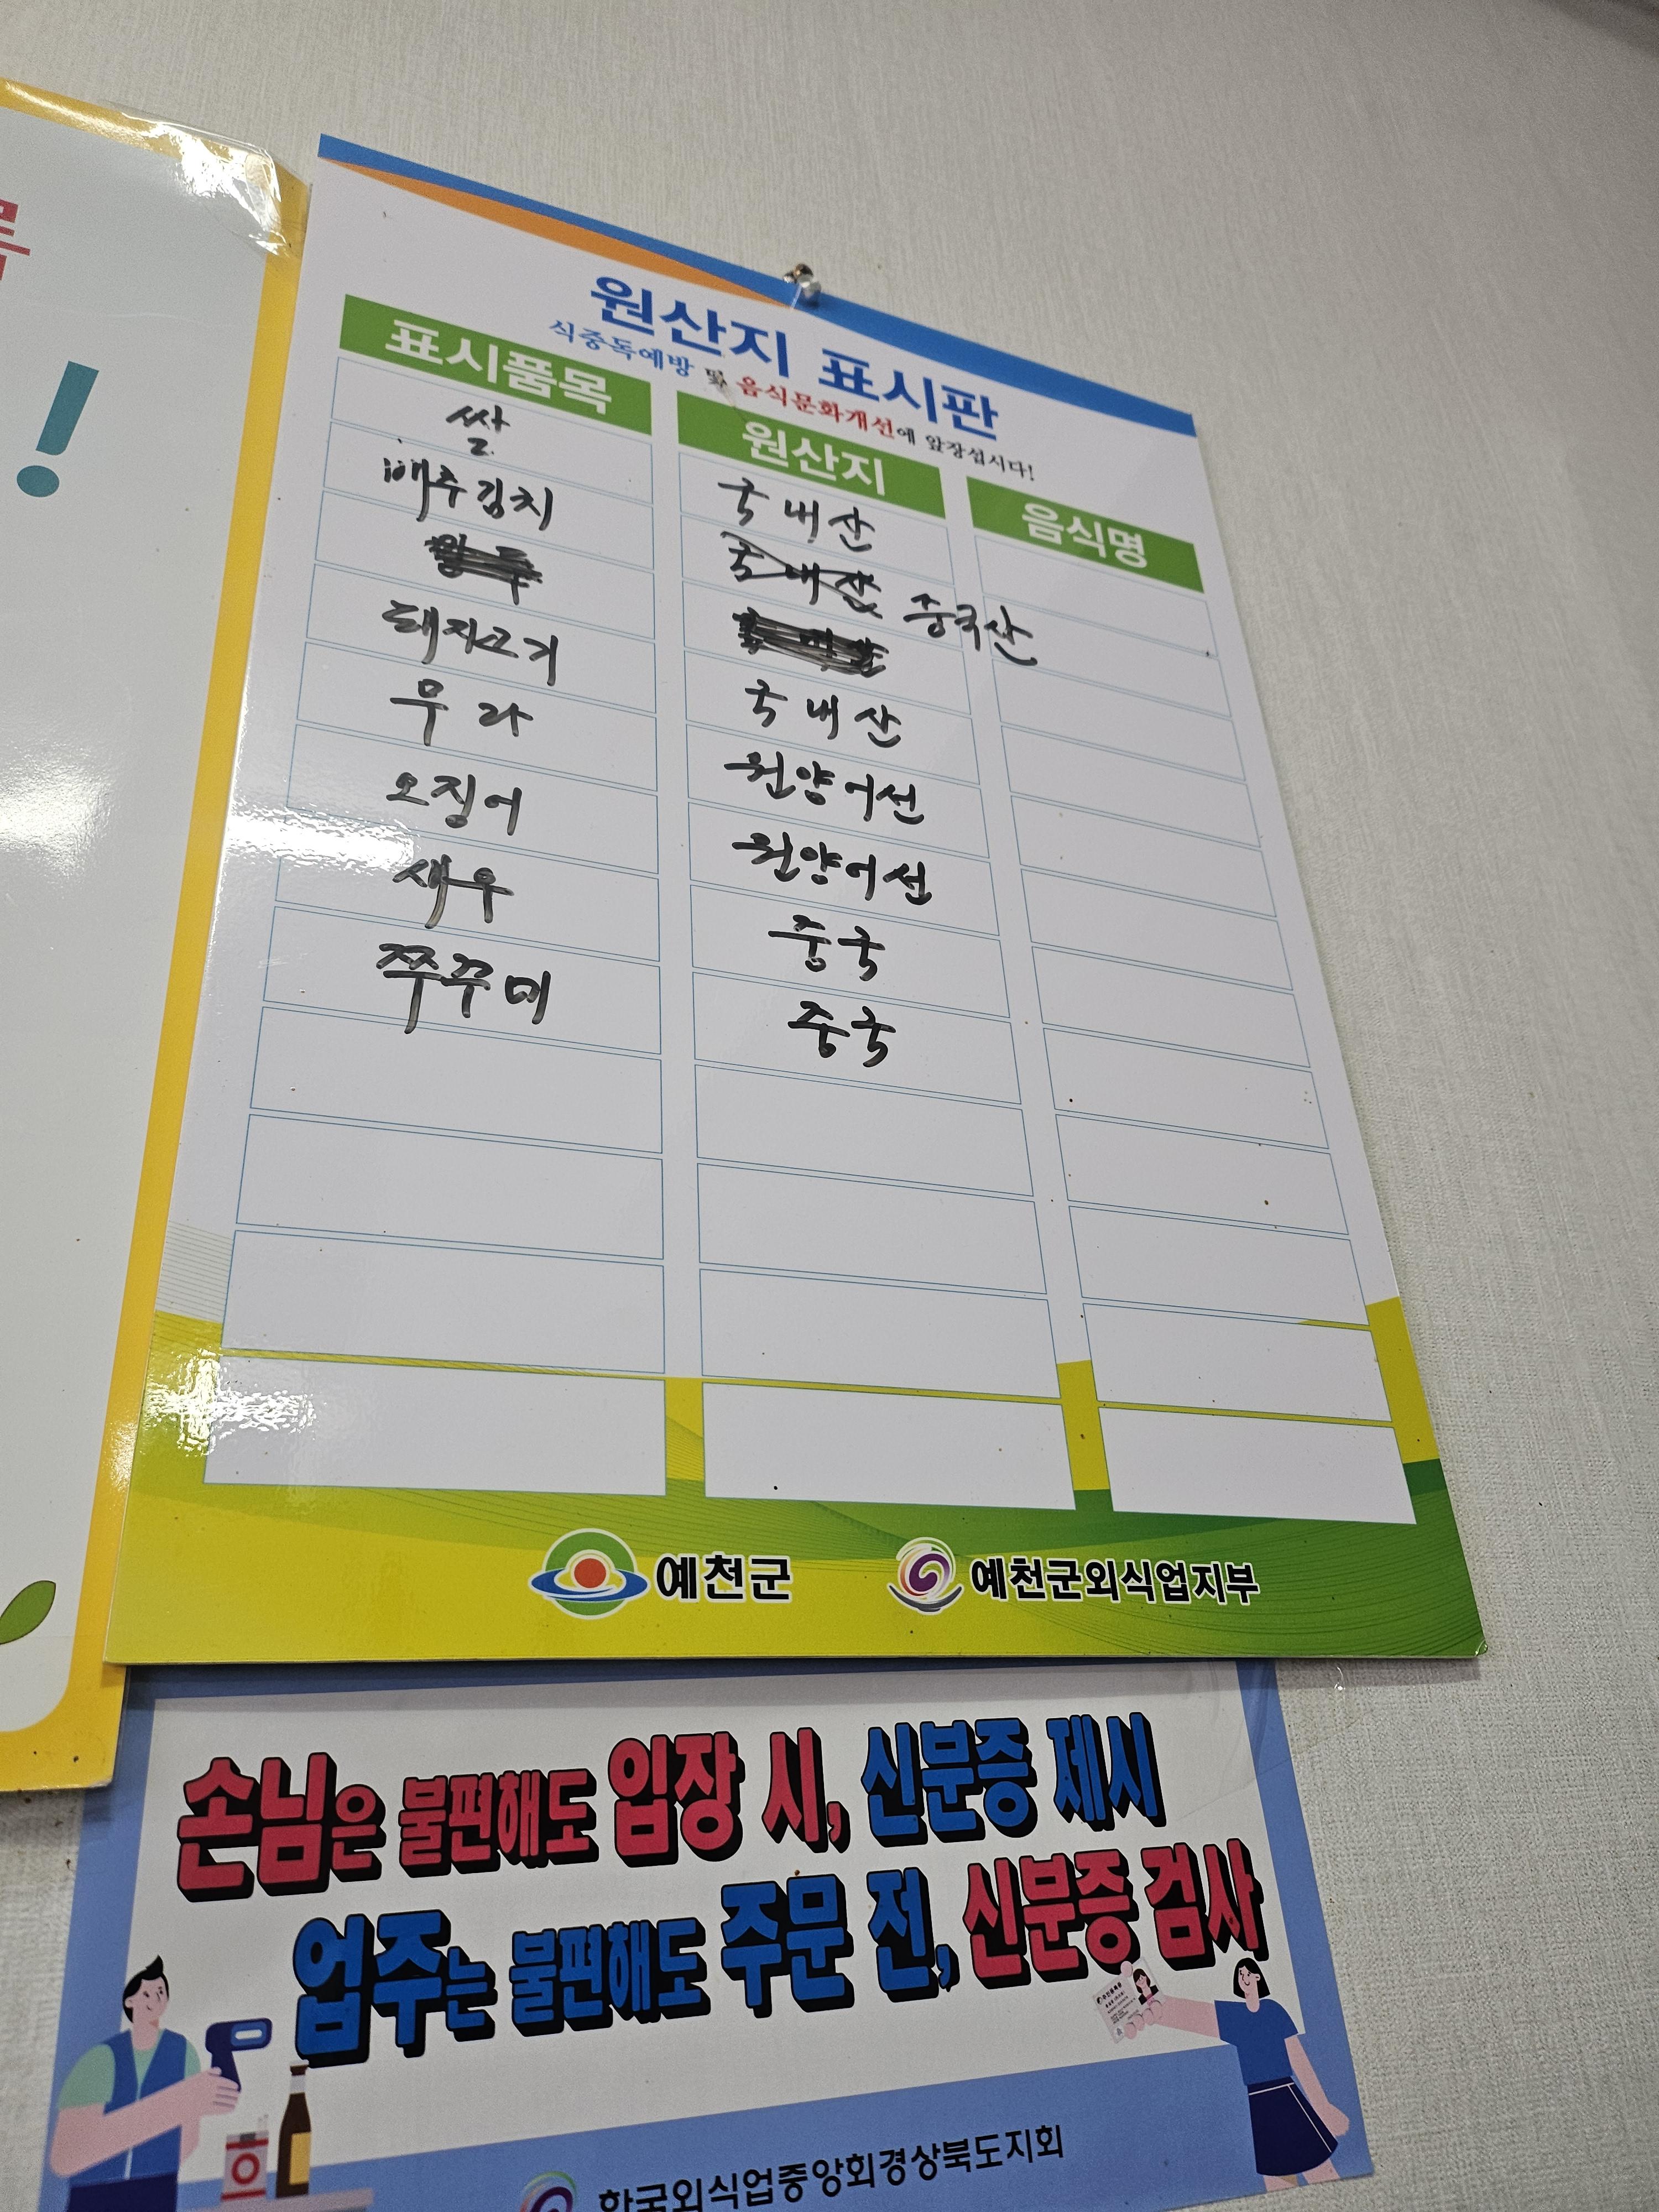 !
원산지 표시판
식중독예방 및 음식문화개선에 앞장섭시다!
표시품목 원산지 음식명
쌀 국내산
배추김치 국내산 중국산
돼지고기 국내산
무라 원양어선
오징어 원양어선
새우 중국
쭈꾸미 중국
예천군 예천군외식업지부
손님은 불편해도 입장 시, 신분증 제시
업주는 불편해도 주문 전, 신분증 검사
한국외식업중앙회경상북도지회